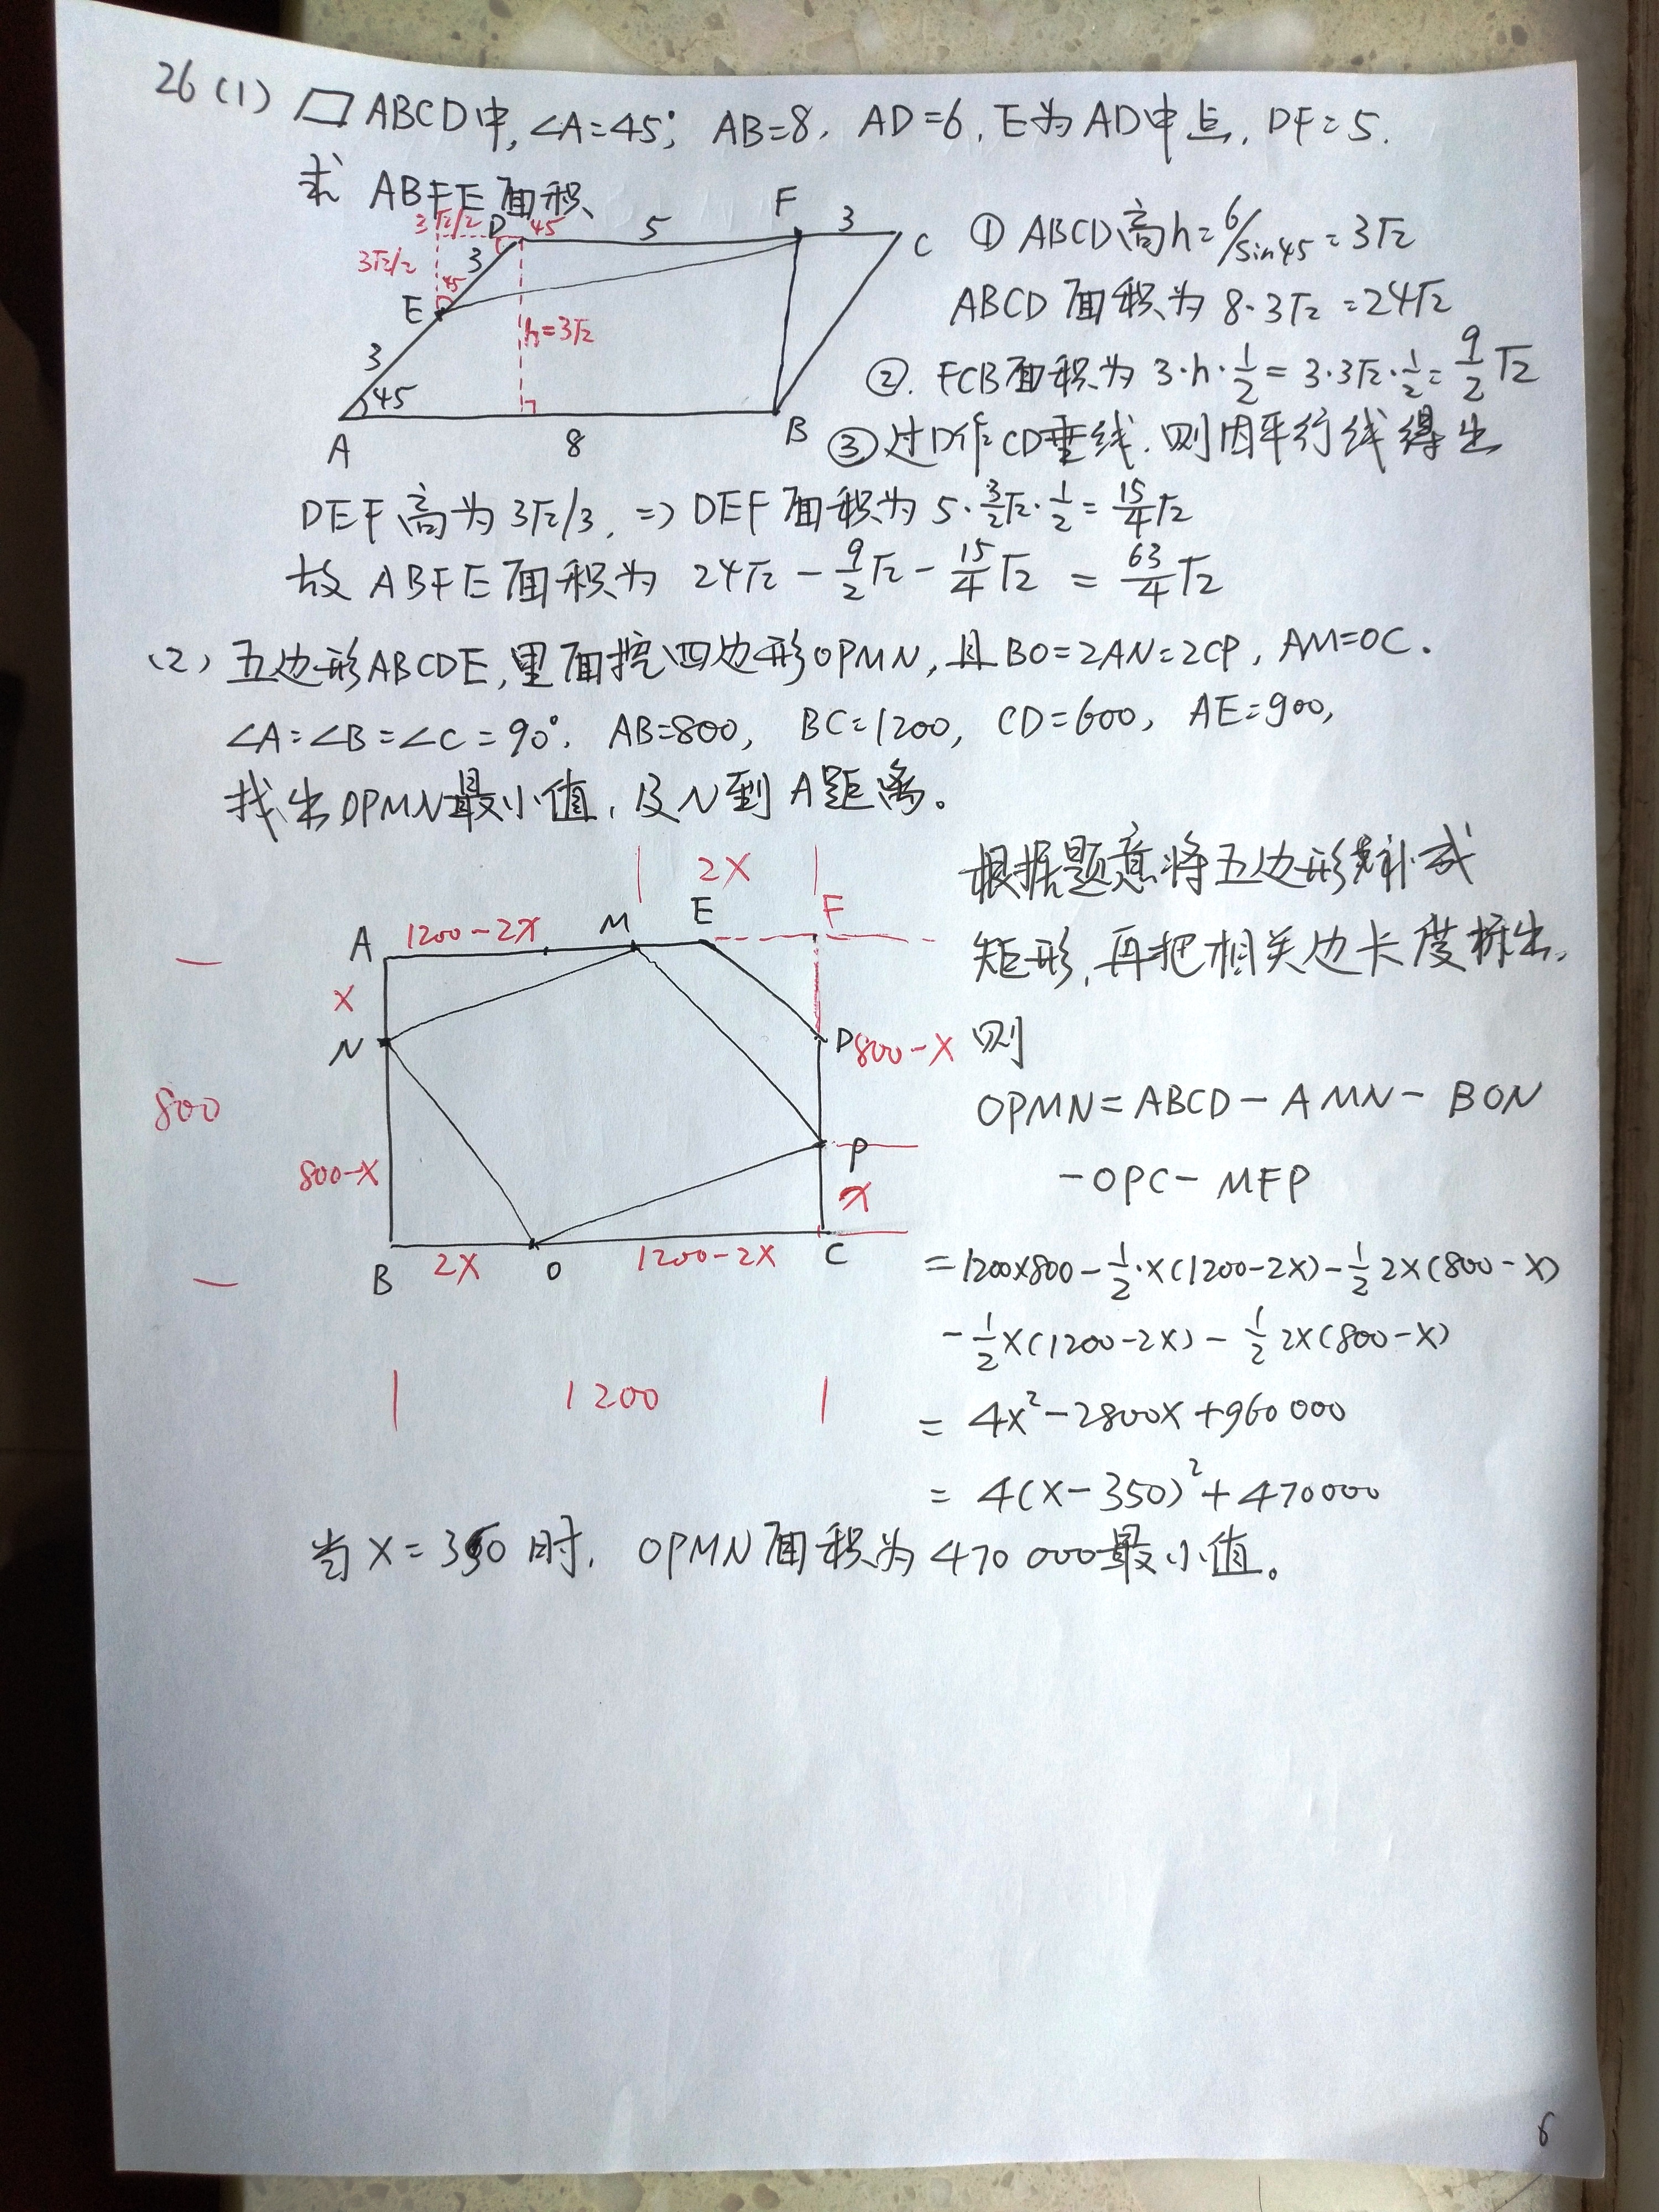 26 (1) ▱ ABCD中, ∠A=45°, AB=8, AD=6, E为AD中点, DF=5.
求 ABFE 面积
3√2/2
D
45
5
F
3
C
3√2/2
3
45
E
h=3√2
3
45
A
8
B
① ABCD高h=6/sin45=3√2
ABCD 面积为 8·3√2=24√2
②. FCB面积为 3·h·1/2=3·3√2·1/2=9/2√2
③过D作CD垂线.则因平行线得出
DEF高为3√2/3, ⇒ DEF面积为 5·3/2√2·1/2=15/4√2
故 ABFE面积为 24√2-9/2√2-15/4√2=63/4√2
(2) 五边形ABCDE,里面挖四边形OPMN,且BO=2AN=2CP, AM=OC.
∠A=∠B=∠C=90°. AB=800, BC=1200, CD=600, AE=900,
找出OPMN最小值,及N到A距离。
2X
A
1200-2X
M
E
F
X
N
D
800-X
800
800-X
P
X
B
2X
O
1200-2X
C
1200
根据题意将五边形补成
矩形,再把相关边长度标出,
则
OPMN=ABCD-AMN-BON
-OPC-MFP
=1200×800-1/2·X(1200-2X)-1/2 2X(800-X)
-1/2X(1200-2X)-1/2 2X(800-X)
=4X²-2800X+960000
=4(X-350)²+470000
当X=350时, OPMN面积为470000最小值。
6